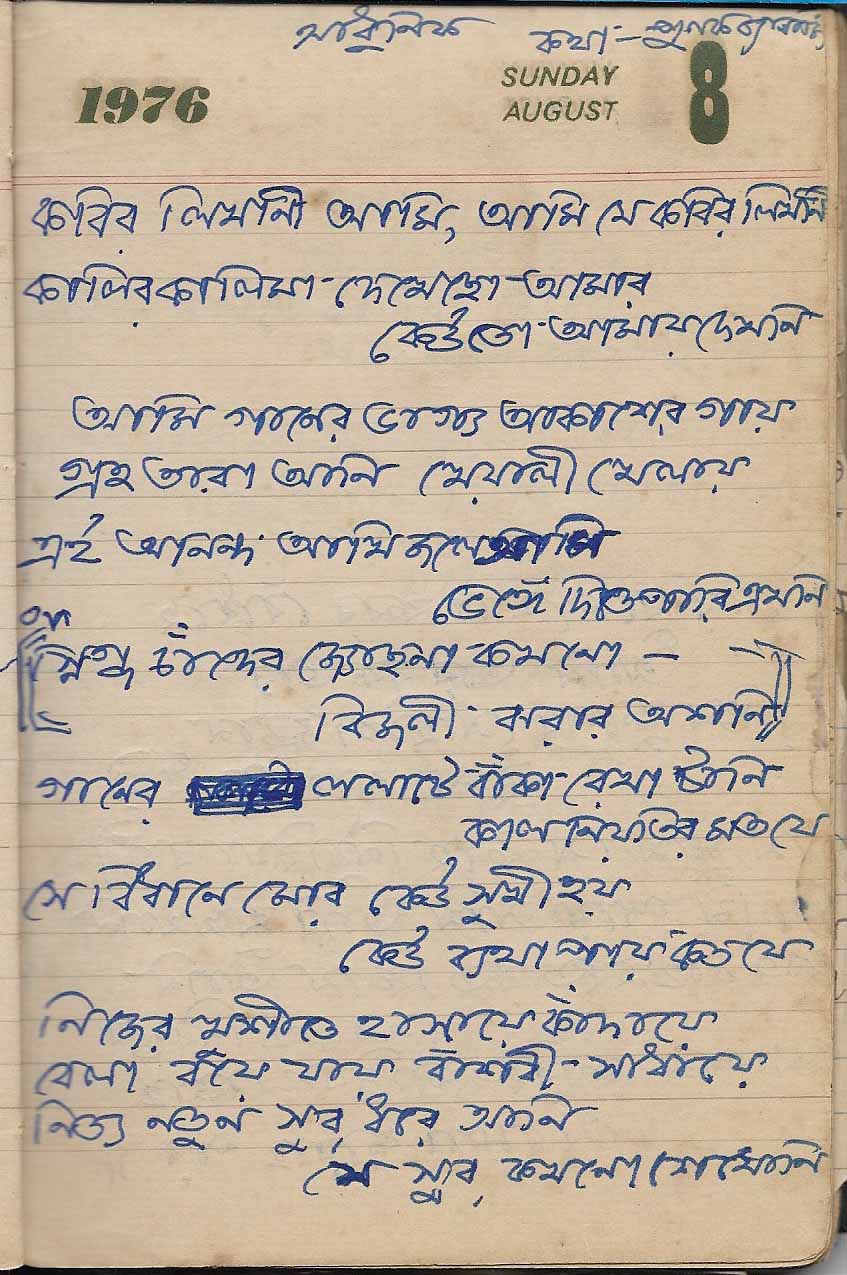 আধুনিক কথা:-
1976 SUNDAY AUGUST 8
কবির লিখনী আমি, আমি যে কবির লিখনী
কালির কালিমা দেখেছো আমার
কেউতো আমায় দেখনি
আমি গানের ভাগ্য আকাশের গায়
গ্রহ তারা আনি খেয়ালী খেলায়
এই আনন্দ আমি
ভেঙ্গে দিতে পারি এখনি
স্নিগ্ধ চাঁদের জ্যোছনা কখনো -
বিজলী ঝরার অশনি
গানের ললাটে বাঁকা রেখা টানি
কাল নিয়তির মত যে
সে বিধানে মোর কেউ সুখী হয়
কেউ ব্যথা পায় কত যে
নিজের খুশীতে হাসায়ে কাঁদায়ে
বেলা বয়ে যায় বাঁশরী সাধায়ে
নিত্য নতুন সুর ধরে আনি
সে সুর কখনো শেখোনি